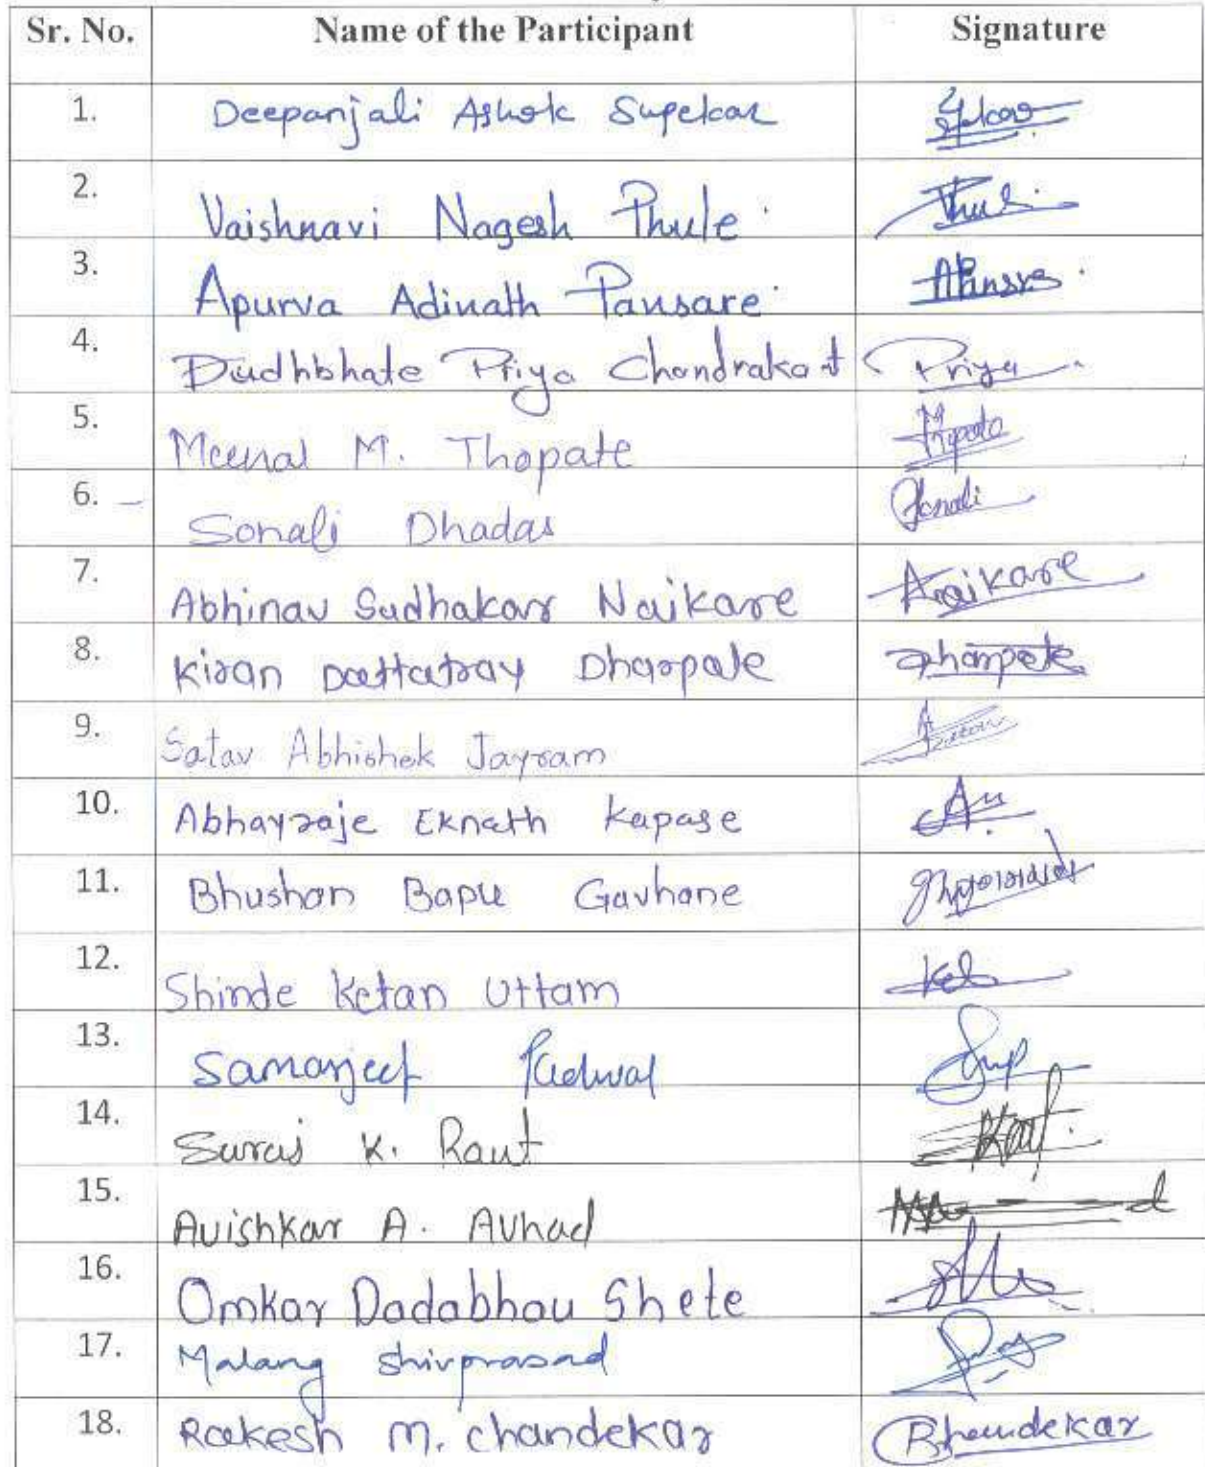 Sr. No. Name of the Participant Signature
1. Deepanjali Ashok Supekar
2. Vaishnavi Nagesh Phule
3. Apurva Adinath Pansare
4. Dudhbhate Priya Chandrakant Priya
5. Meenal M. Thopate
6. Sonali Dhadas Sonali
7. Abhinav Sudhakar Naikare Anaikare
8. Kiran Dattatray Dharpale
9. Satav Abhishek Jayram
10. Abhayraje Eknath Kapase
11. Bhushan Bapu Gavhane
12. Shinde Ketan Uttam
13. Samarjeet Padwal
14. Suraj K. Raut
15. Avishkar A. Avhad
16. Omkar Dadabhau Shete
17. Malang Shivprasad
18. Rakesh M. Chandekar